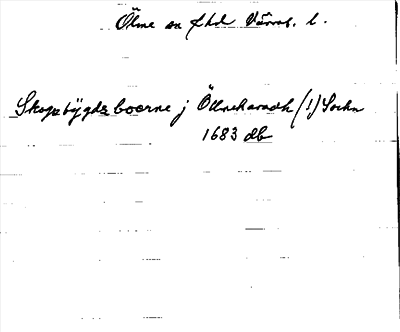 Ölme sn fhd Värml. l.
Skogzbÿgdz boerne j Öllneharadh (!) Sochn
1683 db